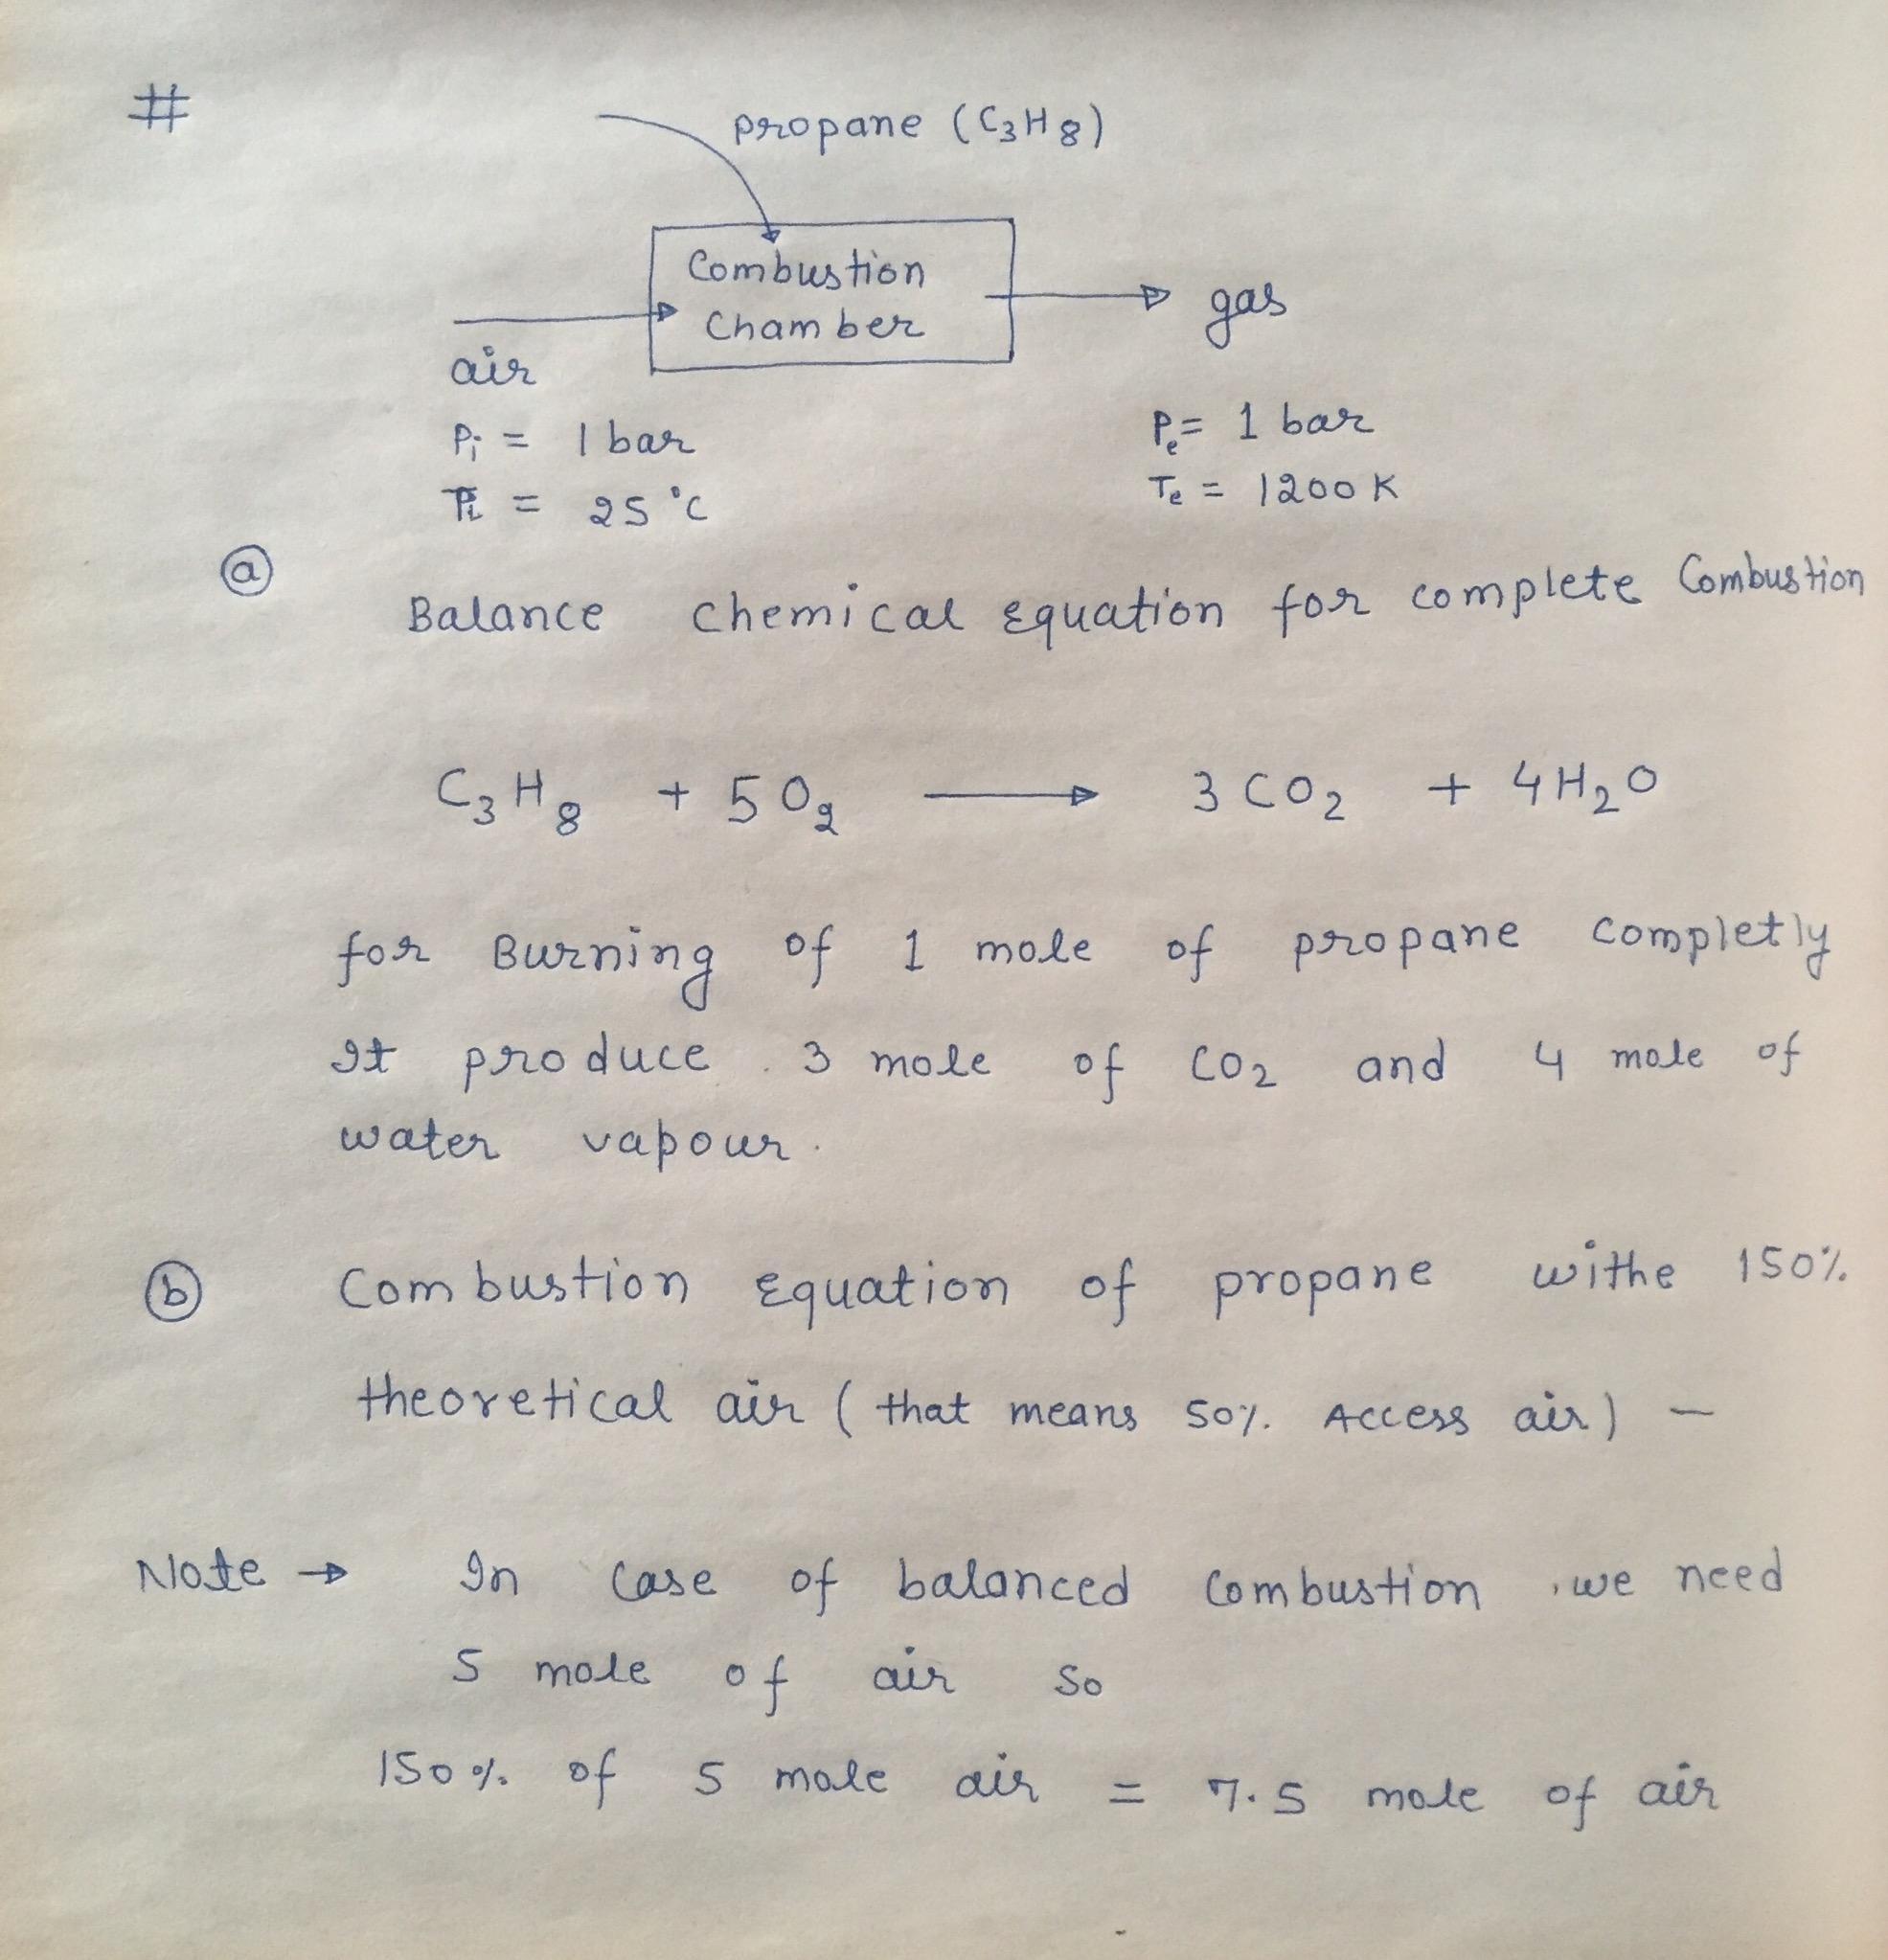 #
propane (C3H8)
Combustion
Chamber
gas
air
Pi = 1 bar
Ti = 25 °C
Pe = 1 bar
Te = 1200 K
(a)
Balance chemical Equation for complete Combustion
C3H8 + 5O2 → 3CO2 + 4H2O
for Burning of 1 mole of propane completly
It produce . 3 mole of CO2 and 4 mole of
water vapour.
(b) Combustion Equation of propane withe 150%
theoretical air ( that means 50% Access air) —
Note → In case of balanced combustion , we need
5 mole of air so
150% of 5 mole air = 7.5 mole of air